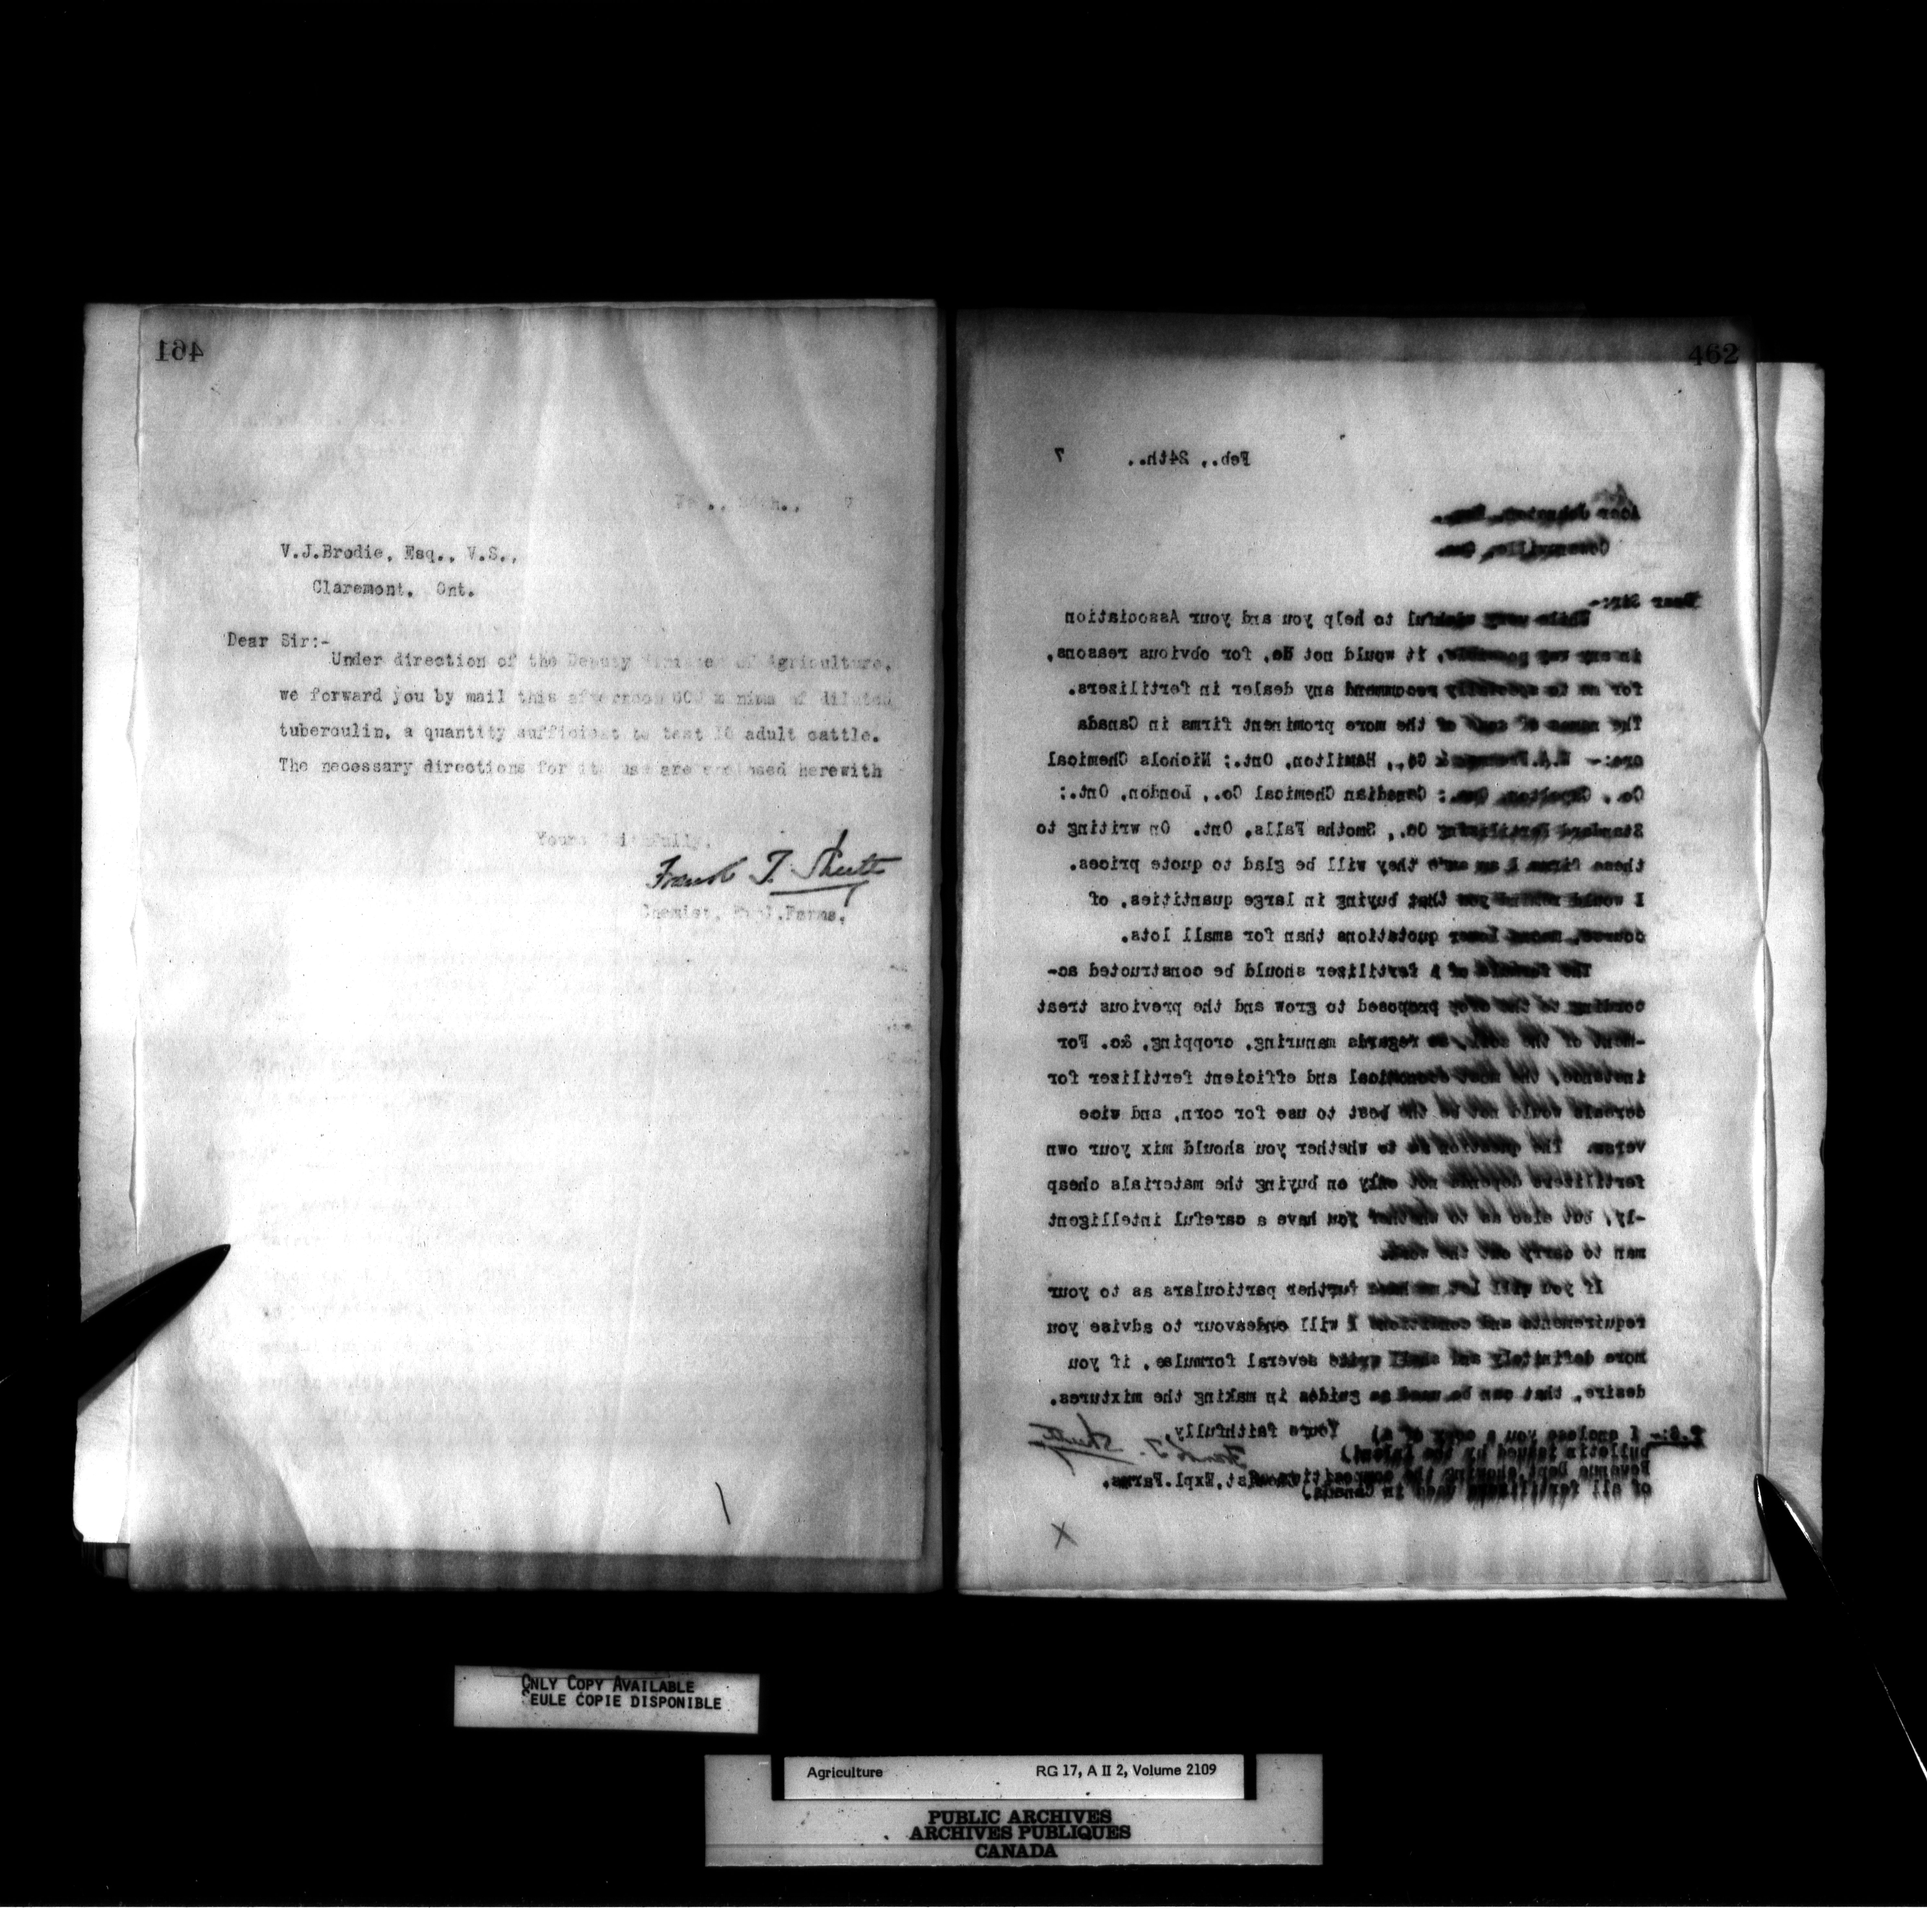 461
Feb., 24th., 7
V.J.Brodie, Esq., V.S.,
Claremont, Ont.
Dear Sir:-
Under direction of the Deputy Minister of Agriculture,
we forward you by mail this afternoon 600 minims of diluted
tuberculin, a quantity sufficient to test 10 adult cattle.
The necessary directions for its use are enclosed herewith
Yours faithfully,
Frank T. Shutt
Chemist, Expl.Farms.
462
Feb., 24th., 7
Dear Sir:-
While very wishful to help you and your Association
in any way possible, it would not do, for obvious reasons,
for me to specially recommend any dealer in fertilizers.
The names of some of the more prominent firms in Canada
are:- W.A.Freeman & Co., Hamilton, Ont.; Nichols Chemical
Co., Capelton, Que.; Canadian Chemical Co., London, Ont.;
Standard Fertilizing Co., Smoths Falls, Ont. On writing to
these firms I am sure they will be glad to quote prices.
I would remind you that buying in large quantities, of
course, means lower quotations than for small lots.
The formula of a fertilizer should be constructed ac-
cording to the crop proposed to grow and the previous treat
-ment of the soil, as regards manuring, cropping, &c. For
instance, the most economical and efficient fertilizer for
cereals would not be the best to use for corn, and vice
versa. The question as to whether you should mix your own
fertilizers depends not only on buying the materials cheap
-ly, but also as to whether you have a careful intelligent
man to carry out the work.
If you will let me have further particulars as to your
requirements and conditions I will endeavour to advise you
more definitely and shall write several formulae, if you
desire, that can be used as guides in making the mixtures.
Yours faithfully,
Frank T. Shutt
Chemist, Expl.Farms.
P.S:- I enclose you a copy of a
bulletin issued by the Inland
Revenue Dept. showing the composition
of all fertilizers used in Canada.
X
ONLY COPY AVAILABLE
SEULE COPIE DISPONIBLE
Agriculture RG 17, A II 2, Volume 2109
PUBLIC ARCHIVES
ARCHIVES PUBLIQUES
CANADA